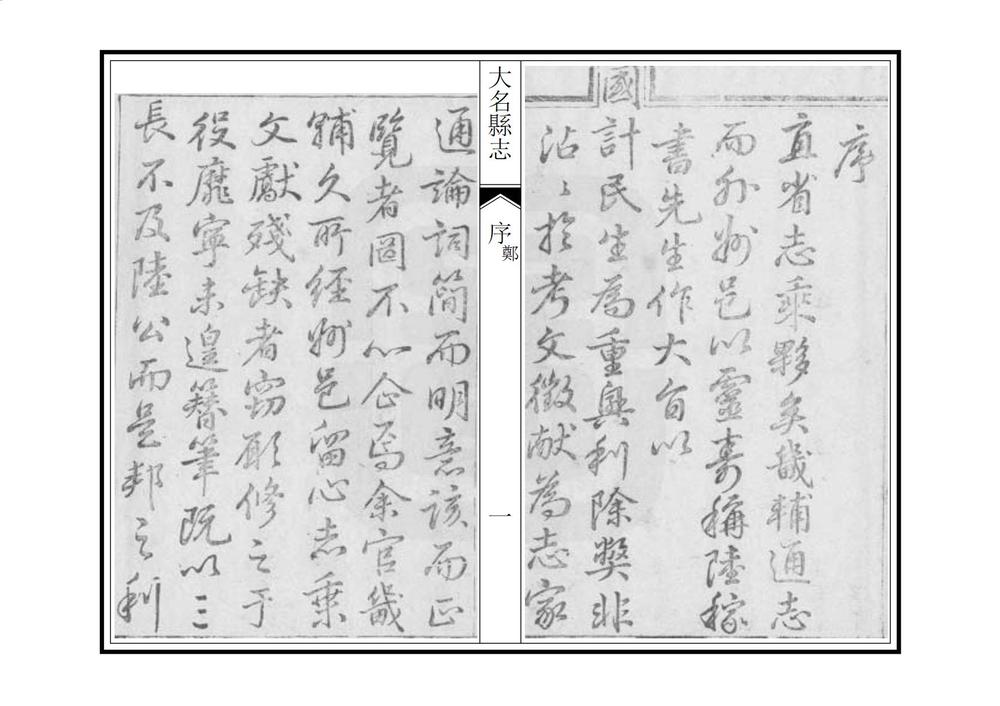 序
直省志乘夥矣畿輔通志
而外州邑以靈壽稱陸稼
書先生作大旨以
國計民生為重興利除獘非
沾〻於考文徵献為志家
大名縣志
序鄭
一
通論詞簡而明意該而正
覽者圖不心企焉余官畿
輔久所經州邑留心志乗
文獻殘缺者竊願修之于
役靡寧未遑簪筆既以三
長不及陸公而是邦之利